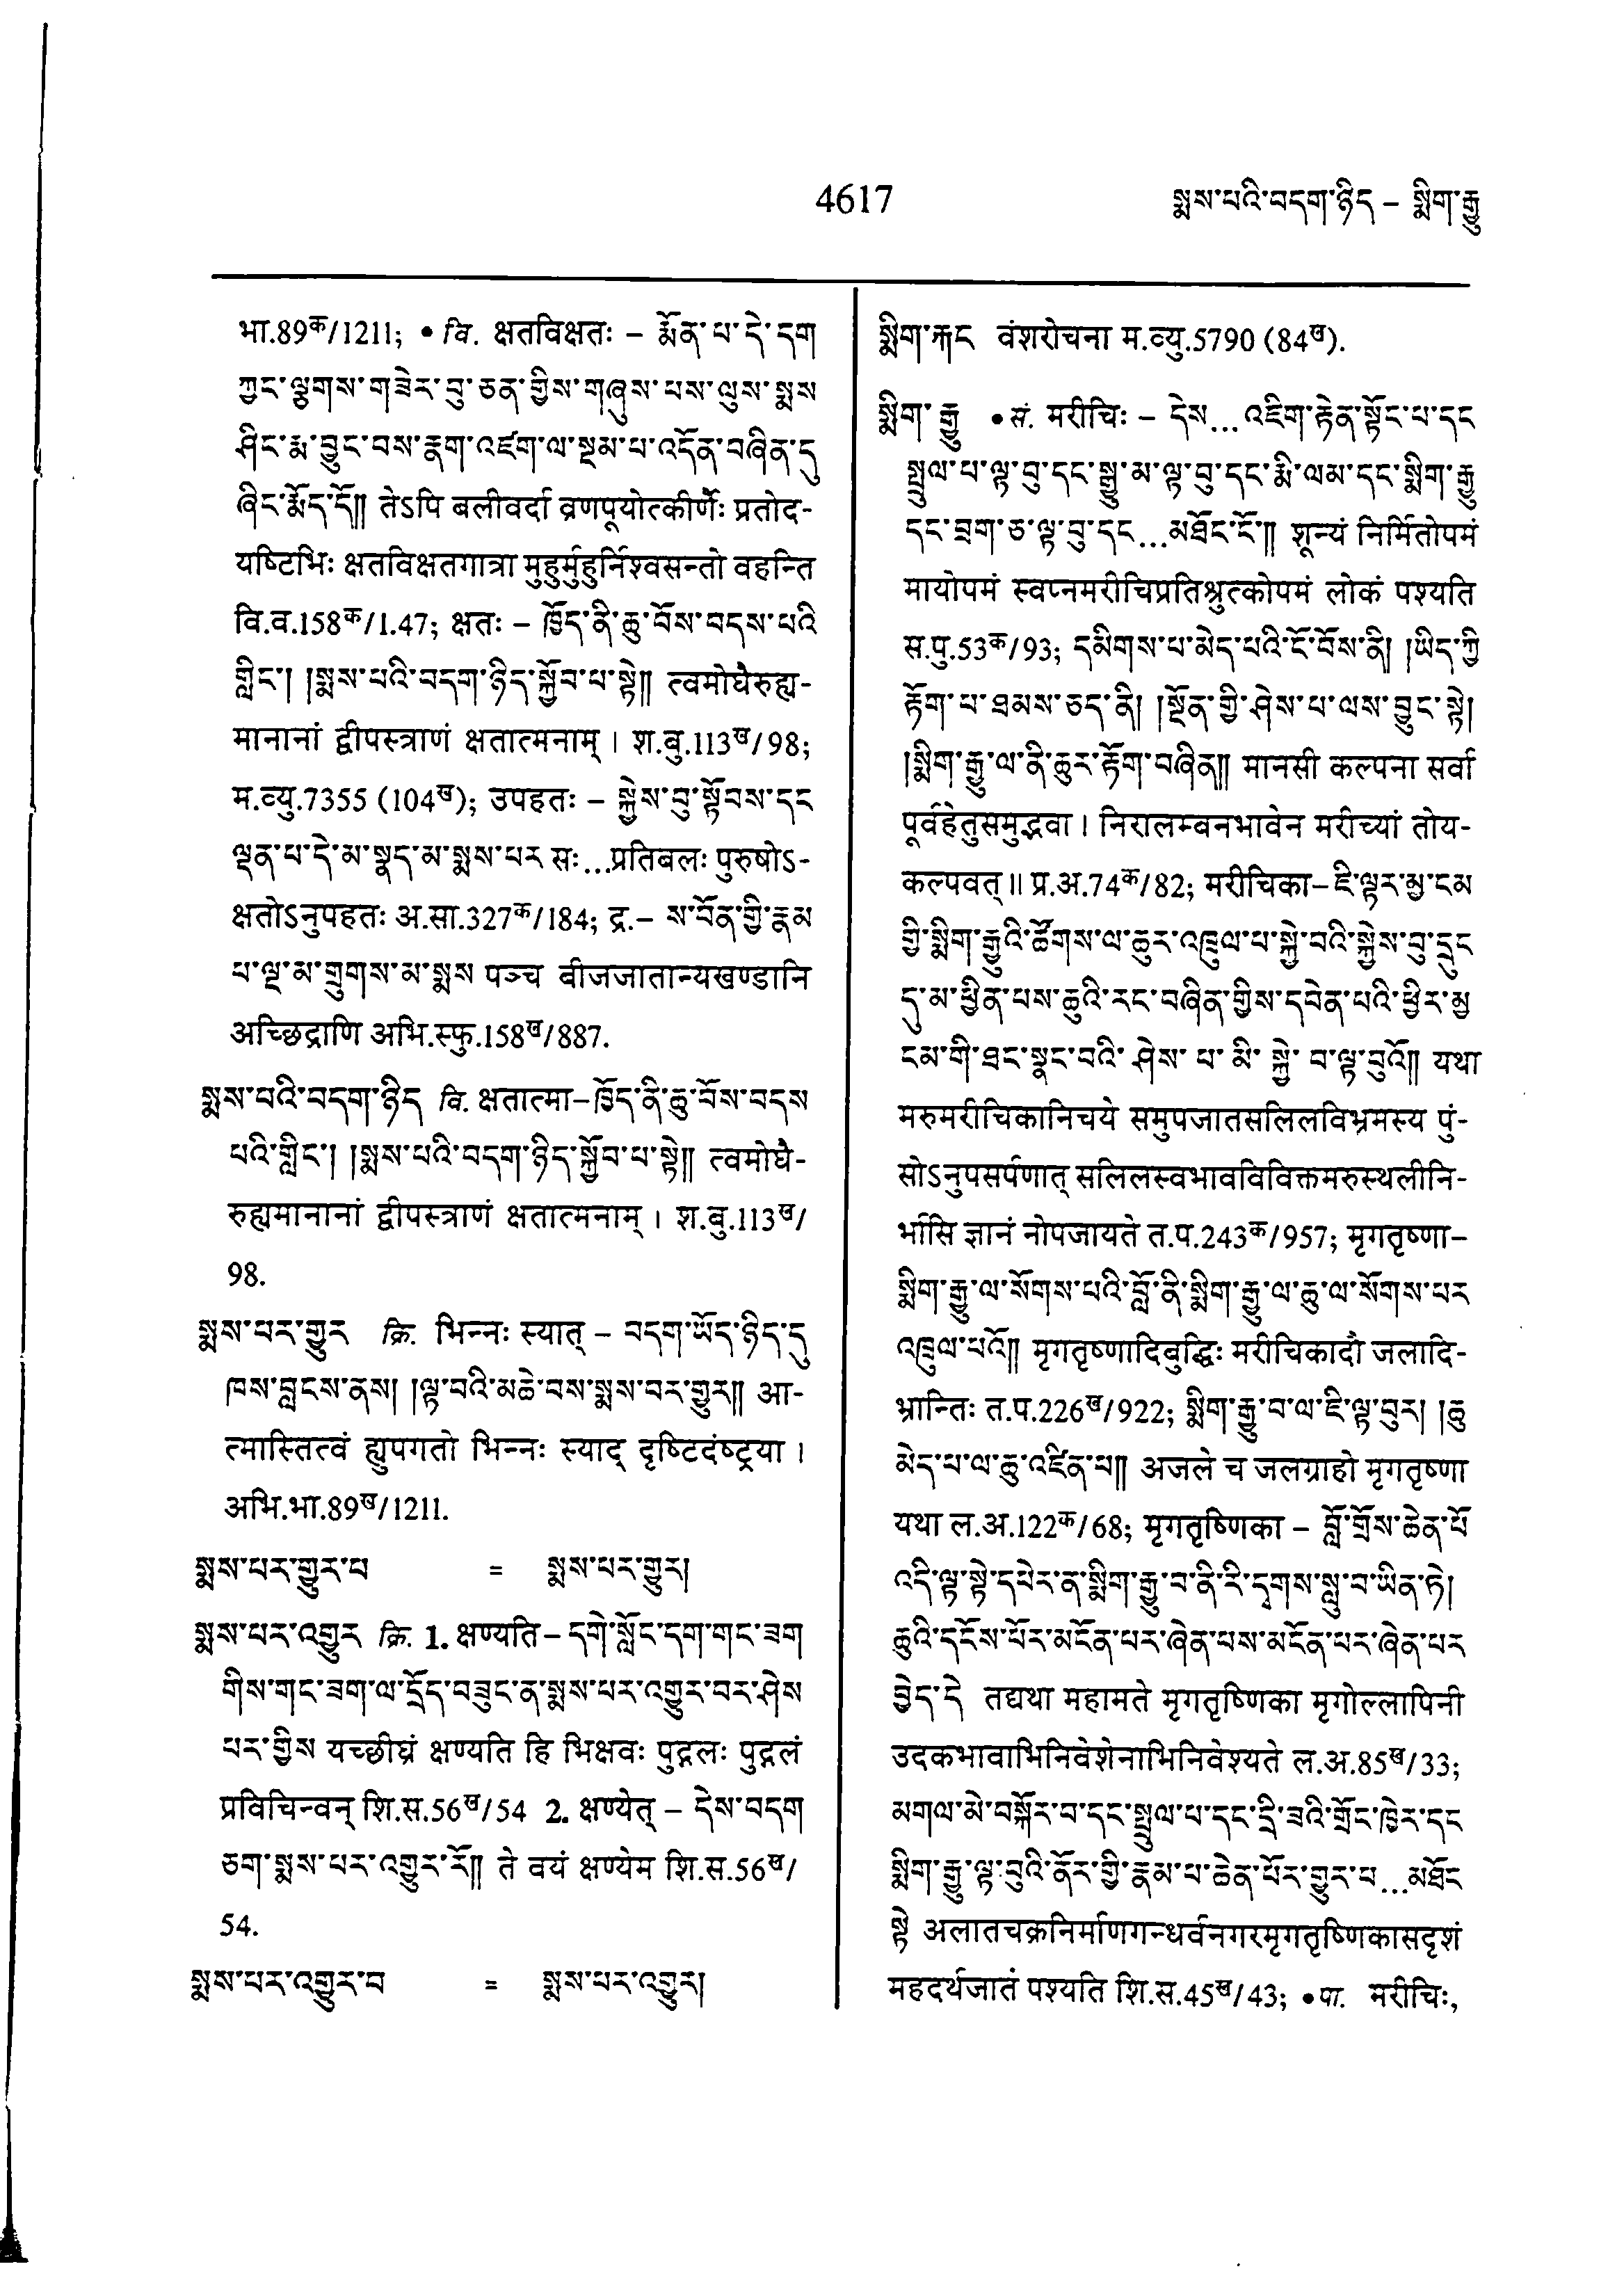 4617
སྨས་པའི་བདག་ཉིད – སྨིག་རྒྱུ
भा.89क/1211; • वि. क्षतविक्षतः – རྨོན་པ་དེ་དག
ཀྱང་ལྕགས་གཟེར་བུ་ཅན་གྱིས་གཞུས་པས་ལུས་སྨས
ཤིང་རྨ་བྱུང་བས་རྣག་འཛག་ལ་སྡམ་པ་འདོན་བཞིན་དུ
ཞིང་རྨོད་དོ༎ तेऽपि बलीवर्दा व्रणपूयोत्कीर्णैः प्रतोद-
यष्टिभिः क्षतविक्षतगात्रा मुहुर्मुहुर्निश्वसन्तो वहन्ति
वि.व.158क/1.47; क्षतः – ཁྱོད་ནི་ཆུ་བོས་བདས་པའི
གླིང་། །སྨས་པའི་བདག་ཉིད་སྐྱོབ་པ་སྟེ༎ त्वमोघैरुह्य-
मानानां द्वीपस्त्राणं क्षतात्मनाम् । श.बु.113ख/98;
म.व्यु.7355 (104ख); उपहतः – སྐྱེས་བུ་སྟོབས་དང
ལྡན་པ་དེ་མ་སྣད་མ་སྨས་པར सः...प्रतिबलः पुरुषोऽ-
क्षतोऽनुपहतः अ.सा.327क/184; द्र.– ས་བོན་གྱི་རྣམ
པ་ལྔ་མ་གྲུགས་མ་སྨས पञ्च बीजजातान्यखण्डानि
अच्छिद्राणि अभि.स्फु.158ख/887.
སྨས་པའི་བདག་ཉིད वि. क्षतात्मा–ཁྱོད་ནི་ཆུ་བོས་བདས
པའི་གླིང་། །སྨས་པའི་བདག་ཉིད་སྐྱོབ་པ་སྟེ༎ त्वमोघै-
रुह्यमानानां द्वीपस्त्राणं क्षतात्मनाम् । श.बु.113ख/
98.
སྨས་པར་གྱུར क्रि. भिन्नः स्यात् – བདག་ཡོད་ཉིད་དུ
ཁས་བླངས་ནས། །ལྟ་བའི་མཆེ་བས་སྨས་པར་གྱུར༎ आ-
त्मास्तित्वं ह्युपगतो भिन्नः स्याद् दृष्टिदंष्ट्रया ।
अभि.भा.89ख/1211.
སྨས་པར་གྱུར་པ = སྨས་པར་གྱུར།
སྨས་པར་འགྱུར क्रि. 1. क्षण्यति – དགེ་སློང་དག་གང་ཟག
གིས་གང་ཟག་ལ་དྲོད་བཟུང་ན་སྨས་པར་འགྱུར་བར་ཤེས
པར་གྱིས यच्छीघ्रं क्षण्यति हि भिक्षवः पुद्गलः पुद्गलं
प्रविचिन्वन् शि.स.56ख/54 2. क्षण्येत् – དེས་བདག
ཅག་སྨས་པར་འགྱུར་རོ༎ ते वयं क्षण्येम शि.स.56ख/
54.
སྨས་པར་འགྱུར་བ = སྨས་པར་འགྱུར།
སྨིག་རྐང वंशरोचना म.व्यु.5790 (84ख).
སྨིག་རྒྱུ • सं. मरीचिः – དེས...འཇིག་རྟེན་སྟོང་པ་དང
སྤྲུལ་པ་ལྟ་བུ་དང་སྒྱུ་མ་ལྟ་བུ་དང་རྨི་ལམ་དང་སྨིག་རྒྱུ
དང་བྲག་ཅ་ལྟ་བུ་དང...མཐོང་ངོ་༎ शून्यं निर्मितोपमं
मायोपमं स्वप्नमरीचिप्रतिश्रुत्कोपमं लोकं पश्यति
स.पु.53क/93; དམིགས་པ་མེད་པའི་ངོ་བོས་ནི། །ཡིད་ཀྱི
རྟོག་པ་ཐམས་ཅད་ནི། །སྔོན་གྱི་ཤེས་པ་ལས་བྱུང་སྟེ།
།སྨིག་རྒྱུ་ལ་ནི་ཆུར་རྟོག་བཞིན༎ मानसी कल्पना सर्वा
पूर्वहेतुसमुद्भवा । निरालम्बनभावेन मरीच्यां तोय-
कल्पवत् ॥ प्र.अ.74क/82; मरीचिका–ཇི་ལྟར་མྱ་ངམ
གྱི་སྨིག་རྒྱུའི་ཚོགས་ལ་ཆུར་འཁྲུལ་པ་སྐྱེ་བའི་སྐྱེས་བུ་དྲུང
དུ་མ་ཕྱིན་པས་ཆུའི་རང་བཞིན་གྱིས་དབེན་པའི་ཕྱིར་མྱ
ངམ་གི་ཐང་སྣང་བའི་ཤེས་པ་མི་སྐྱེ་བ་ལྟ་བུའོ༎ यथा
मरुमरीचिकानिचये समुपजातसलिलविभ्रमस्य पुं-
सोऽनुपसर्पणात् सलिलस्वभावविविक्तमरुस्थलीनि-
र्भासि ज्ञानं नोपजायते त.प.243क/957; मृगतृष्णा–
སྨིག་རྒྱུ་ལ་སོགས་པའི་བློ་ནི་སྨིག་རྒྱུ་ལ་ཆུ་ལ་སོགས་པར
འཁྲུལ་པའོ༎ मृगतृष्णादिबुद्धिः मरीचिकादौ जलादि-
भ्रान्तिः त.प.226ख/922; སྨིག་རྒྱུ་བ་ལ་ཇི་ལྟ་བུར། །ཆུ
མེད་པ་ལ་ཆུ་འཛིན་པ༎ अजले च जलग्राहो मृगतृष्णा
यथा ल.अ.122क/68; मृगतृष्णिका – བློ་གྲོས་ཆེན་པོ
འདི་ལྟ་སྟེ་དཔེར་ན་སྨིག་རྒྱུ་བ་ནི་རི་དྭགས་སླུ་བ་ཡིན་ཏེ།
ཆུའི་དངོས་པོར་མངོན་པར་ཞེན་པས་མངོན་པར་ཞེན་པར
བྱེད་དེ तद्यथा महामते मृगतृष्णिका मृगोल्लापिनी
उदकभावाभिनिवेशेनाभिनिवेश्यते ल.अ.85ख/33;
མགལ་མེ་བསྐོར་བ་དང་སྤྲུལ་པ་དང་དྲི་ཟའི་གྲོང་ཁྱེར་དང
སྨིག་རྒྱུ་ལྟ་བུའི་ནོར་གྱི་རྣམ་པ་ཆེན་པོར་གྱུར་པ...མཐོང
སྟེ अलातचक्रनिर्माणगन्धर्वनगरमृगतृष्णिकासदृशं
महदर्थजातं पश्यति शि.स.45ख/43; • पा. मरीचिः,